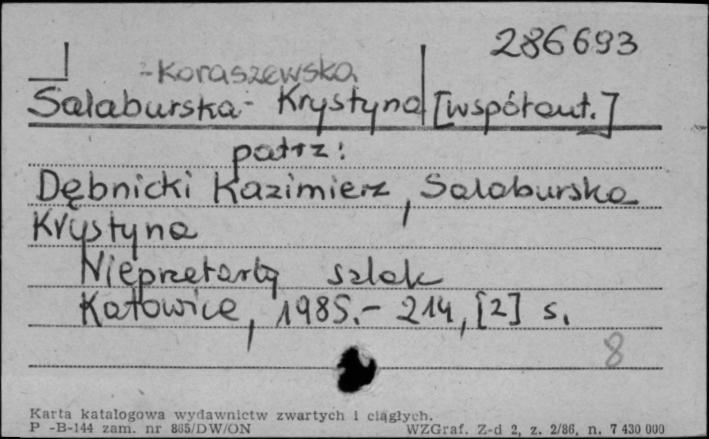 286693
-Koraszewska
Salaburska- Krystyna [współaut.]
patrz:
Dębnicki Kazimierz, Salaburska
Krystyna
Nieprzetarty szlak
Katowice, 1985.- 214, [2] s.
8
Karta katalogowa wydawnictw zwartych i ciągłych.
P -B-144 zam. nr 865/DW/ON WZGraf. Z-d 2, z. 2/86, n. 7 430 000